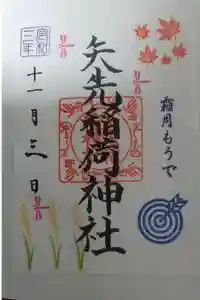 霜月もうで
矢先稲荷神社
令和三年
十一月三日